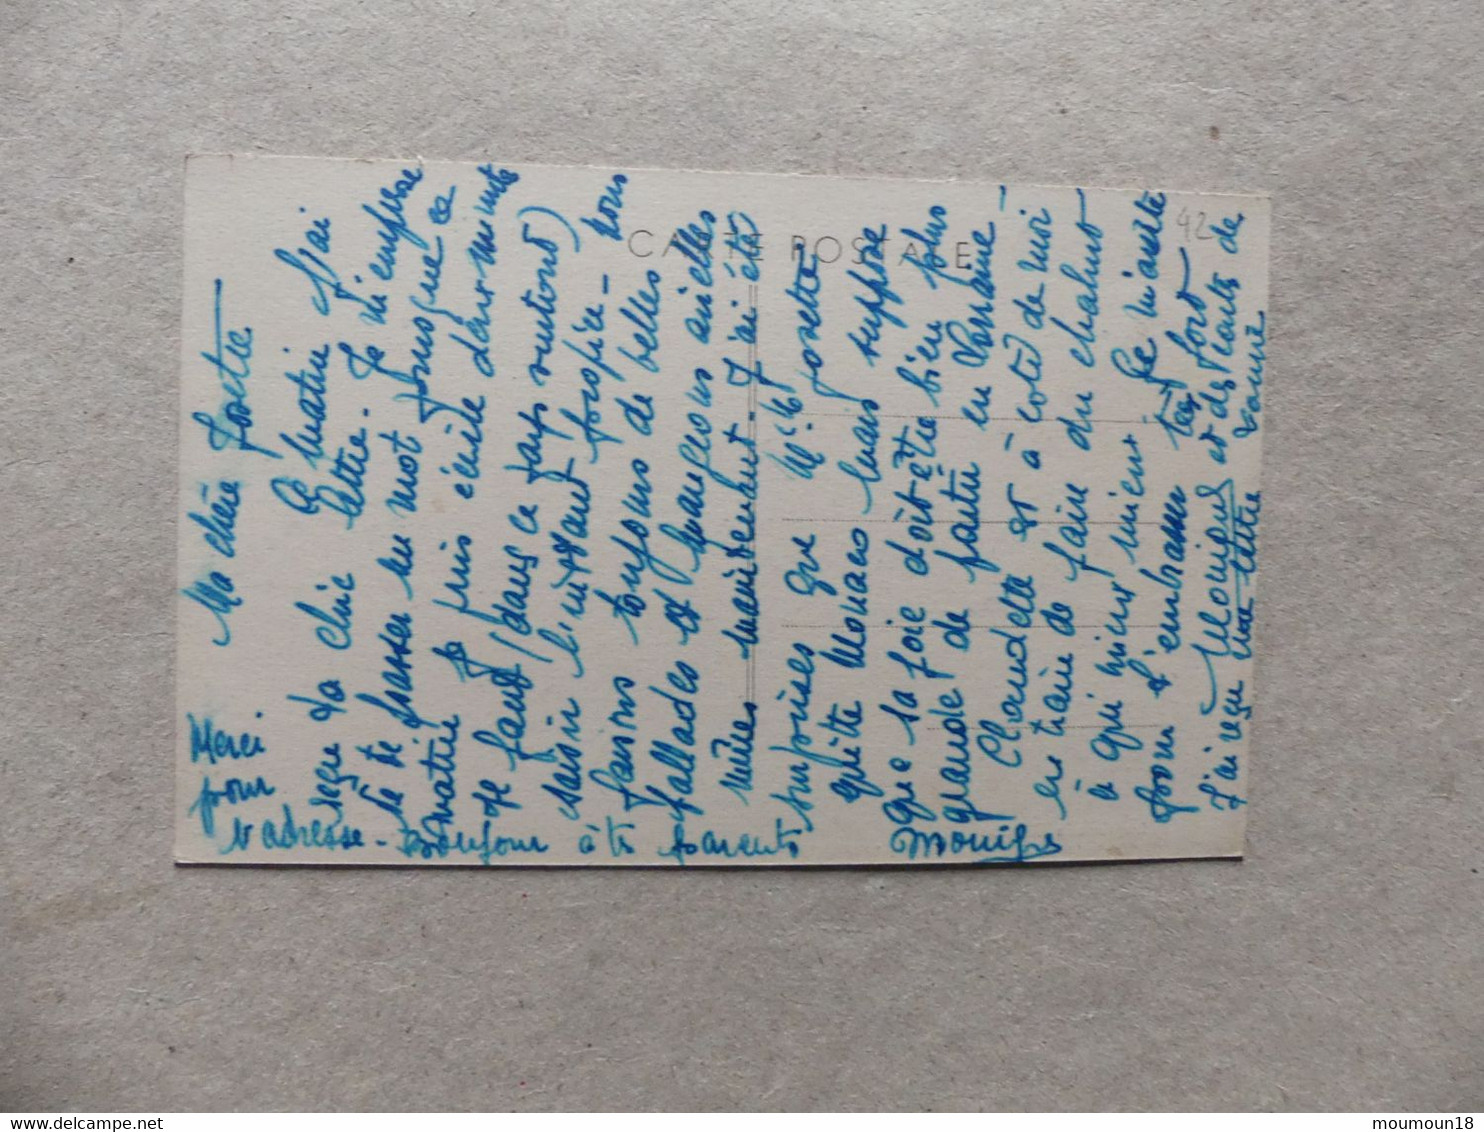 Ma chère Josette
Ce matin j'ai
reçu ta chic lettre. Je m'empresse
de te passer un mot puisque ce
matin je puis écrire deux mots
de faut (dans ce pays surtout)
saisir l'instant propice - Nous
faisons toujours de belles
ballades et mangeons si elles
mûres maintenant. J'ai été
surprise que Mlle Josette
quitte Monaco mais suppose
que sa joie doit être bien plus
grande de partir en Lorraine -
Claudette est à côté de moi
en train de faire du chahut
à qui mieux mieux. Je m'arrête
pour t'embrasser très fort
Monique
J'ai reçu une lettre et des de
Merci
pour
l'adresse - Bonjour à tes parents
Monique
CARTE POSTALE
42
moumoun18